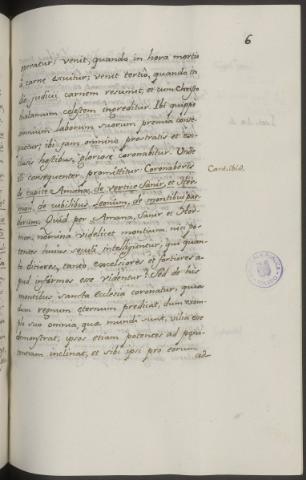 6
peratur; venit, quando in hora mortis
á carne exuitur; venit tertiò, quando in
die judicii carnem resumit, et cum Christo
thalamum cęlestem ingreditur. Ibi quippe
omnium laborum suorum premia conse-
quetur; ibi jam omnino prostratis et
hostibus, gloriose coronabitur. Unde
et consequenter promittitur: Coronaberis
de capite Amana, de vertice Sanir, et Her-
mon, de cubilibus Leonum, de montibus par-
dorum. Quid per Amana, Sanir et Her-
mon, nomina videlicet montium, nisi po-
tentes hujus seculi intelliguntur, qui quan-
to ditiores, tanto excelsiores et fortiores a-
pud infirmos esse videntur? Sed de his
montibus sancta Ecclesia coronatur, quia
dum regnum eternum prediat, dum exem-
plo suo omnia, quę mundi sunt, vilia esse
demonstrat, ipsos etiam potentes ad pęni-
tentiam inclinat, et sibi ipsi pro eorum
Cant. ibid.